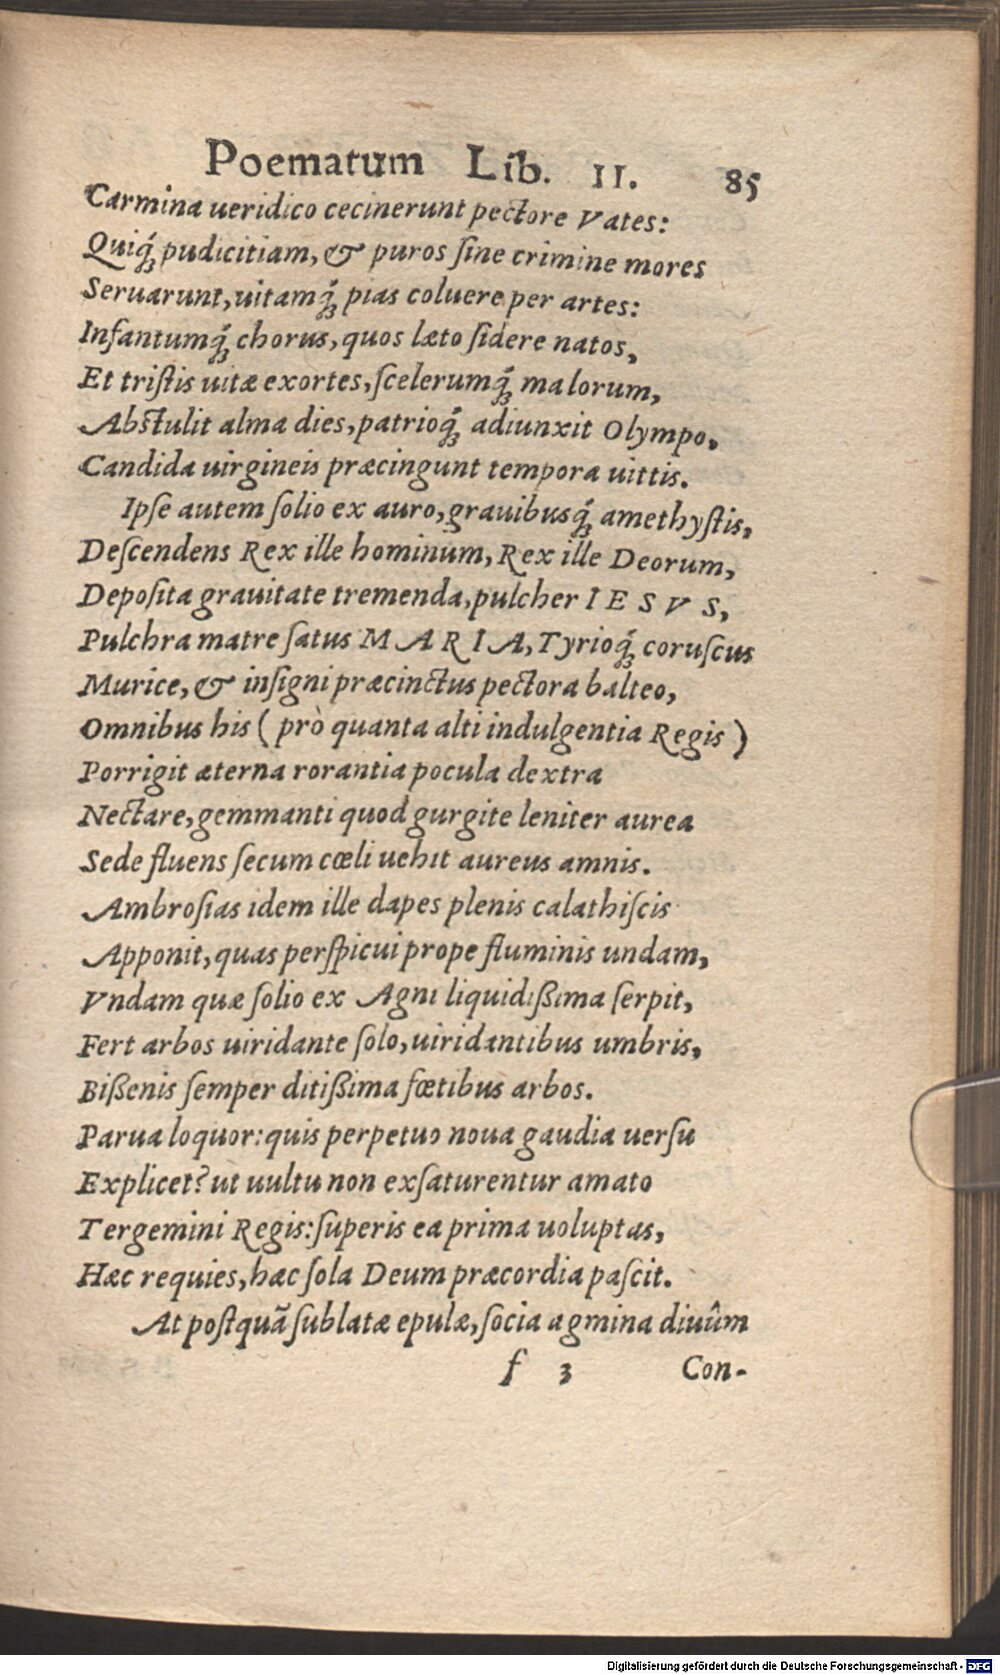 Poematum Lib. II. 85
Carmina ueridico cecinerunt pectore Vates:
Quiq́ꝫ pudicitiam, & puros ſine crimine mores
Seruarunt, uitamq́ꝫ pias coluere per artes:
Infantumq́ꝫ chorus, quos læto ſidere natos,
Et triſtis uitæ exortes, ſcelerumq́ꝫ malorum,
Abſtulit alma dies, patrioq́ꝫ adiunxit Olympo,
Candida uirgineis præcingunt tempora uittis.
Ipſe autem ſolio ex auro, grauibusq́ꝫ amethyſtis,
Deſcendens Rex ille hominum, Rex ille Deorum,
Depoſita grauitate tremenda, pulcher IESVS,
Pulchra matre ſatus MARIA, Tyrioq́ꝫ coruſcus
Murice, & inſigni præcinctus pectora balteo,
Omnibus his (prò quanta alti indulgentia Regis)
Porrigit æterna rorantia pocula dextra
Nectare, gemmanti quod gurgite leniter aurea
Sede fluens ſecum cœli uehit aureus amnis.
Ambroſias idem ille dapes plenis calathiſcis
Apponit, quas perſpicui prope fluminis undam,
Vndam quæ ſolio ex Agni liquidißima ſerpit,
Fert arbos uiridante ſolo, uiridantibus umbris,
Bißenis ſemper ditißima fœtibus arbos.
Parua loquor: quis perpetuo noua gaudia uerſu
Explicet? ut uultu non exſaturentur amato
Tergemini Regis: ſuperis ea prima uoluptas,
Hæc requies, hæc ſola Deum præcordia paſcit.
At poſtquã ſublatæ epulæ, ſocia agmina diuûm
f 3 Con-
Digitalisierung gefördert durch die Deutsche Forschungsgemeinschaft - DFG